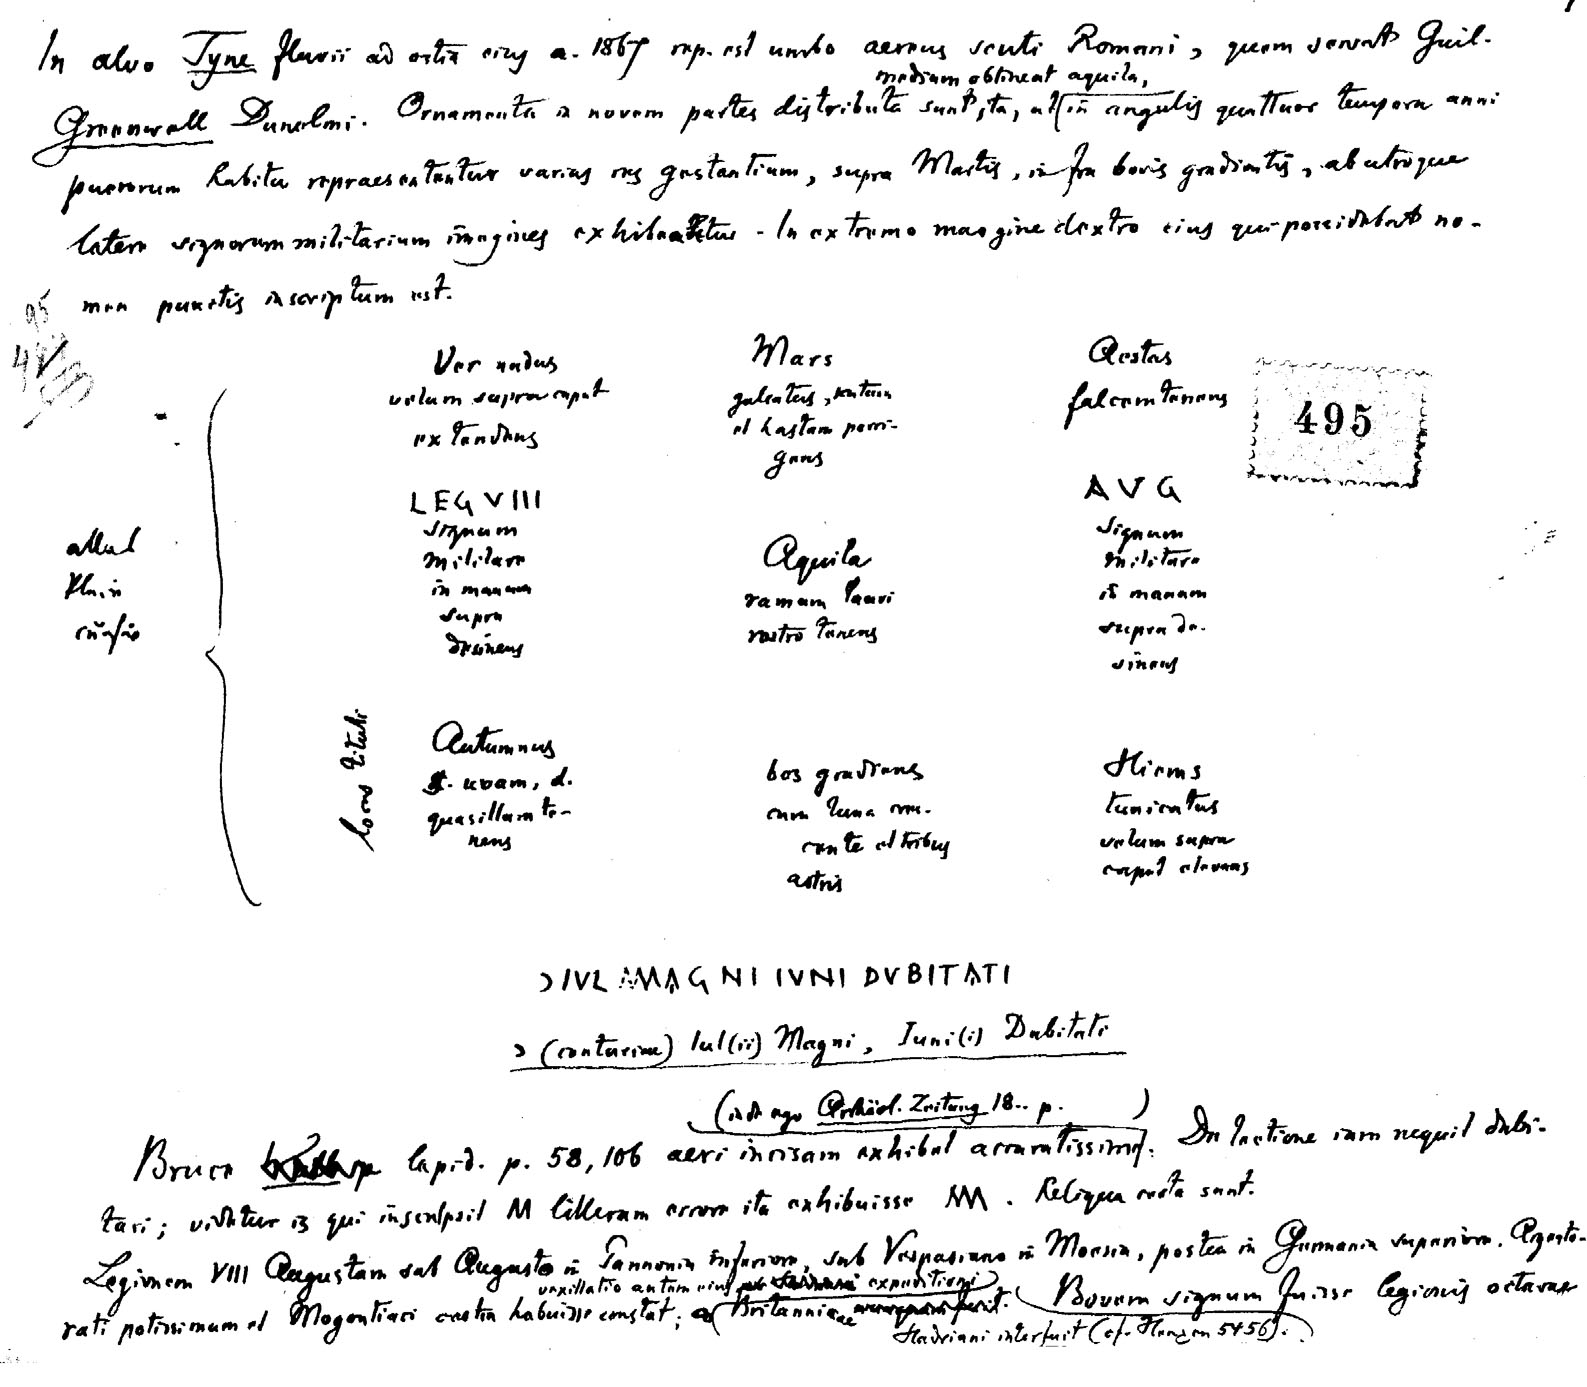 In alveo Tyne fluvii ad ostia eius a. 1867 rep. est umbo aereus scuti Romani, quem servat Guil.
medium obtineat aquila,
Greenwell Dunelmi. Ornamenta in novem partes distributa sunt, ita, ut in angulis quattuor tempora anni
puerorum habitu repraesententur varias res gestantium, supra Martis, infra bovis gradientis, ab utroque
latere signorum militarium imagines exhibeantur. In extremo margine dextro eius qui possidebat no-
men punctis inscriptum est.
495
Ver nudus
velum supra caput
extendens
Mars
galeatus, scutum
et hastam porri-
gens
Aestas
falcem tenens
495
LEG VIII
signum
militare
in manum
supra
desinens
Aquila
ramum lauri
rostro tenens
AVG
signum
militare
in manum
supra de-
sinens
locus tituli
Autumnus
s. uvam, d.
quasillum te-
nens
bos gradiens
cum luna cres-
cente et tribus
astris
Hiems
tunicatus
velum supra
caput elevans
Ɔ IVL MAGNI IVNI DVBITATI
Ɔ (centuriae) Iul(ii) Magni, Iuni(i) Dubitati
(inde ego Archäol. Zeitung 18.. p. )
Bruce lapid. p. 58, 106 aeri incisam exhibet accuratissime. De lectione iam nequit dubi-
tari; videtur is qui insculpsit M litteram errore ita exhibuisse. Reliqua certa sunt.
Legionem VIII Augustam sub Augusto in Pannonia inferiore, sub Vespasiano in Moesia, postea in Germania superiore, Argento-
vexillatio autem eius expeditioni
rati potissimum et Mogontiaci castra habuisse constat; Britannicae Bovem signum fuisse legionis octavae
Hadriani interfuit (cf. Henzen 5456).